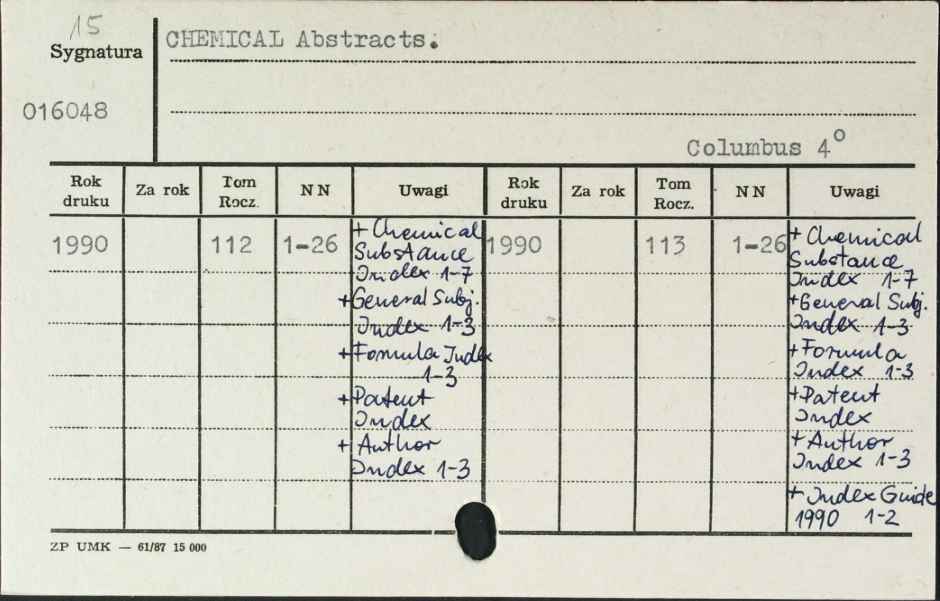 15
Sygnatura
CHEMICAL Abstracts.
016048
Columbus 4°
Rok druku Za rok Tom Rocz. NN Uwagi Rok druku Za rok Tom Rocz. NN Uwagi
1990 112 1-26
+ Chemical
Substance
Index 1-7
+ General Subj.
Index 1-3
+ Formula Index
1-3
+ Patent
Index
+ Author
Index 1-3
1990 113 1-26
+ Chemical
Substance
Index 1-7
+ General Subj.
Index 1-3
+ Formula
Index 1-3
+ Patent
Index
+ Author
Index 1-3
+ Index Guide
1990 1-2
ZP UMK — 61/87 15 000